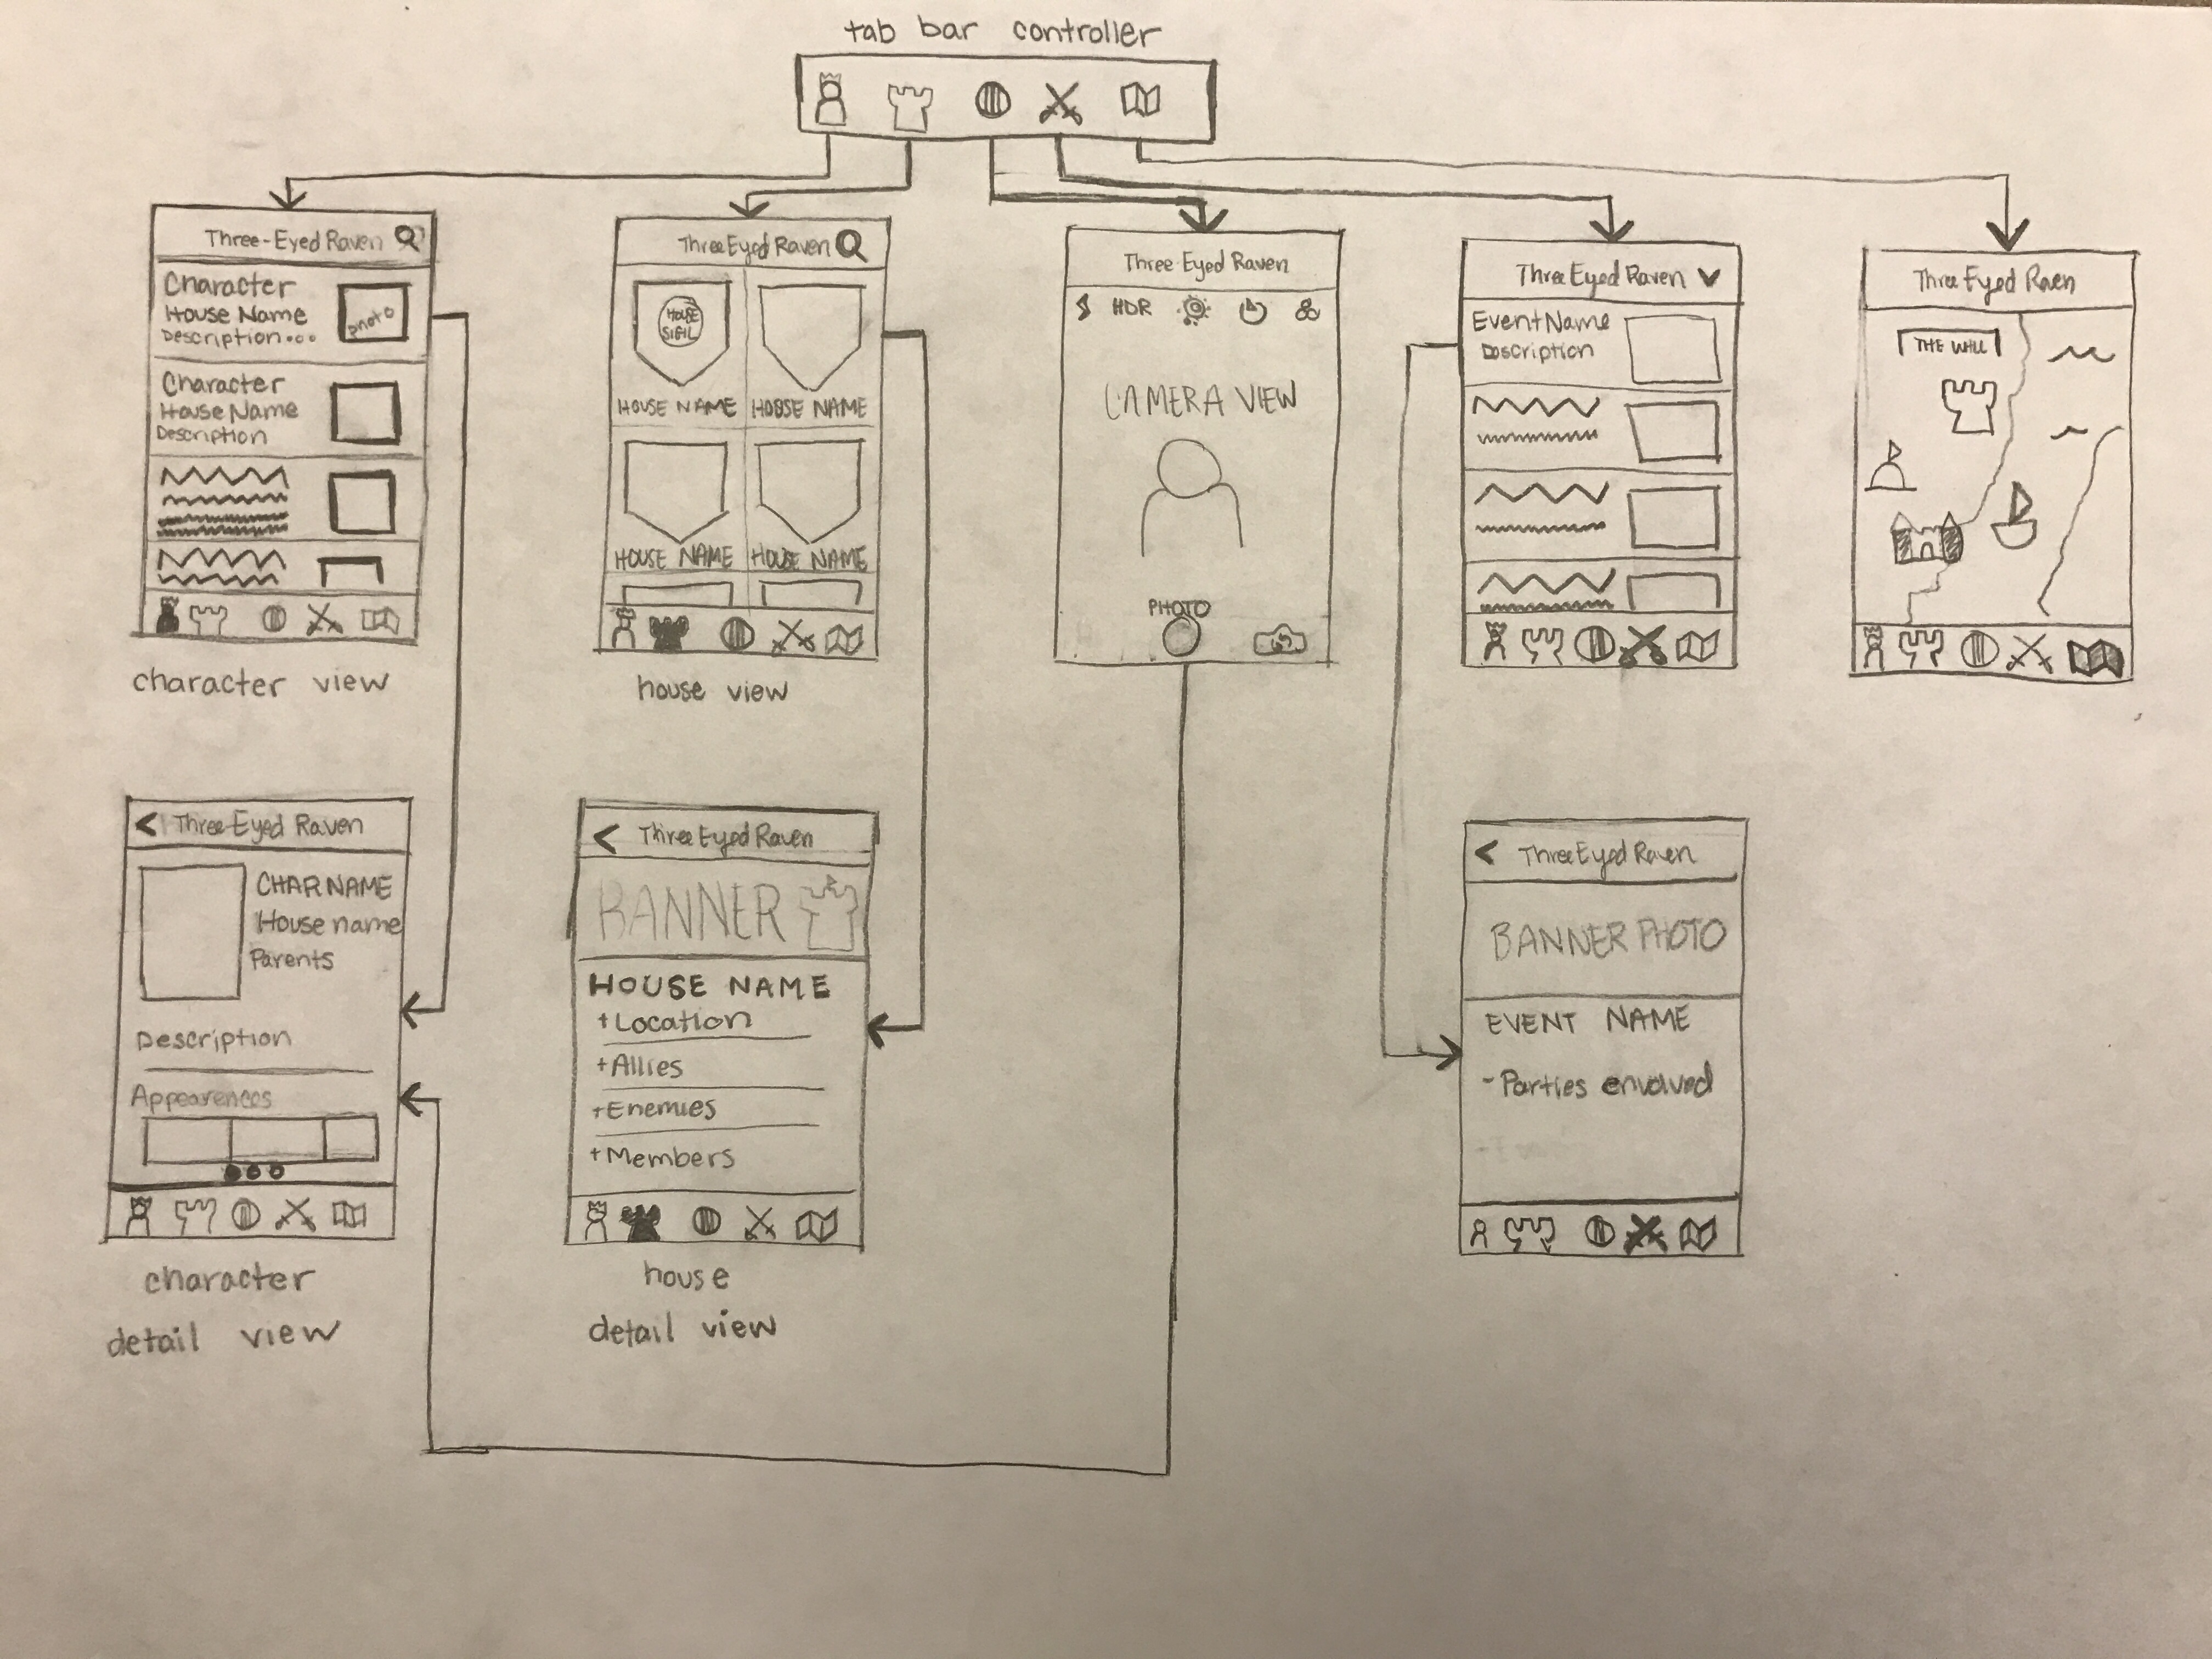 tab bar controller
Three-Eyed Raven
Character
House Name
Description...
photo
Character
House Name
Description
character view
Three Eyed Raven
HOUSE
SIGIL
HOUSE NAME
HOUSE NAME
HOUSE NAME
HOUSE NAME
house view
Three Eyed Raven
HDR
CAMERA VIEW
PHOTO
Three Eyed Raven
Event Name
Description
Three Eyed Raven
THE WALL
< Three-Eyed Raven
CHAR NAME
House name
Parents
Description
Appearences
character
detail view
< Three Eyed Raven
BANNER
HOUSE NAME
+Location
+Allies
+Enemies
+Members
house
detail view
< Three Eyed Raven
BANNER PHOTO
EVENT NAME
- Parties envolved